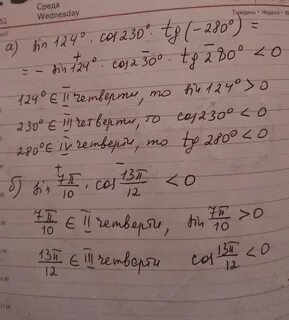 52
Среда
Wednesday
а) sin 124° · cos 230° · tg (−280°) =
= − sin 124° · cos 230° · tg 280° < 0
124° ∈ II четверти, то sin 124° > 0
230° ∈ III четверти, то cos 230° < 0
280° ∈ IV четверти, то tg 280° < 0
б) sin 7π/10 · cos 13π/12 < 0
7π/10 ∈ II четверти, sin 7π/10 > 0
13π/12 ∈ III четверти cos 13π/12 < 0